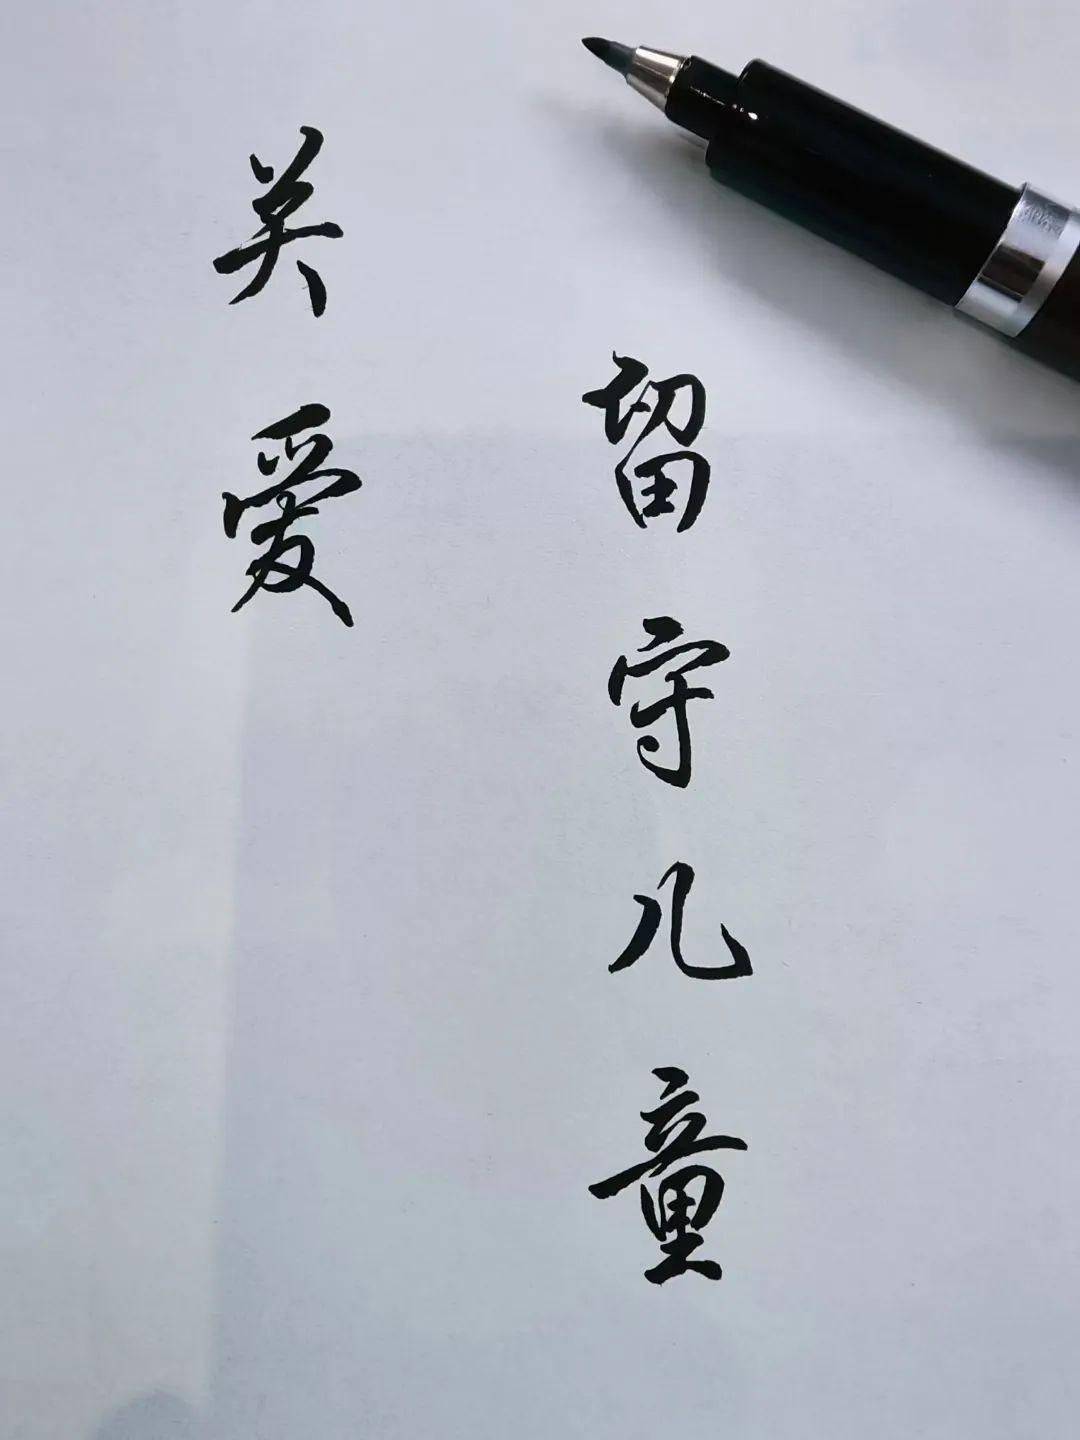 关爱
留守儿童